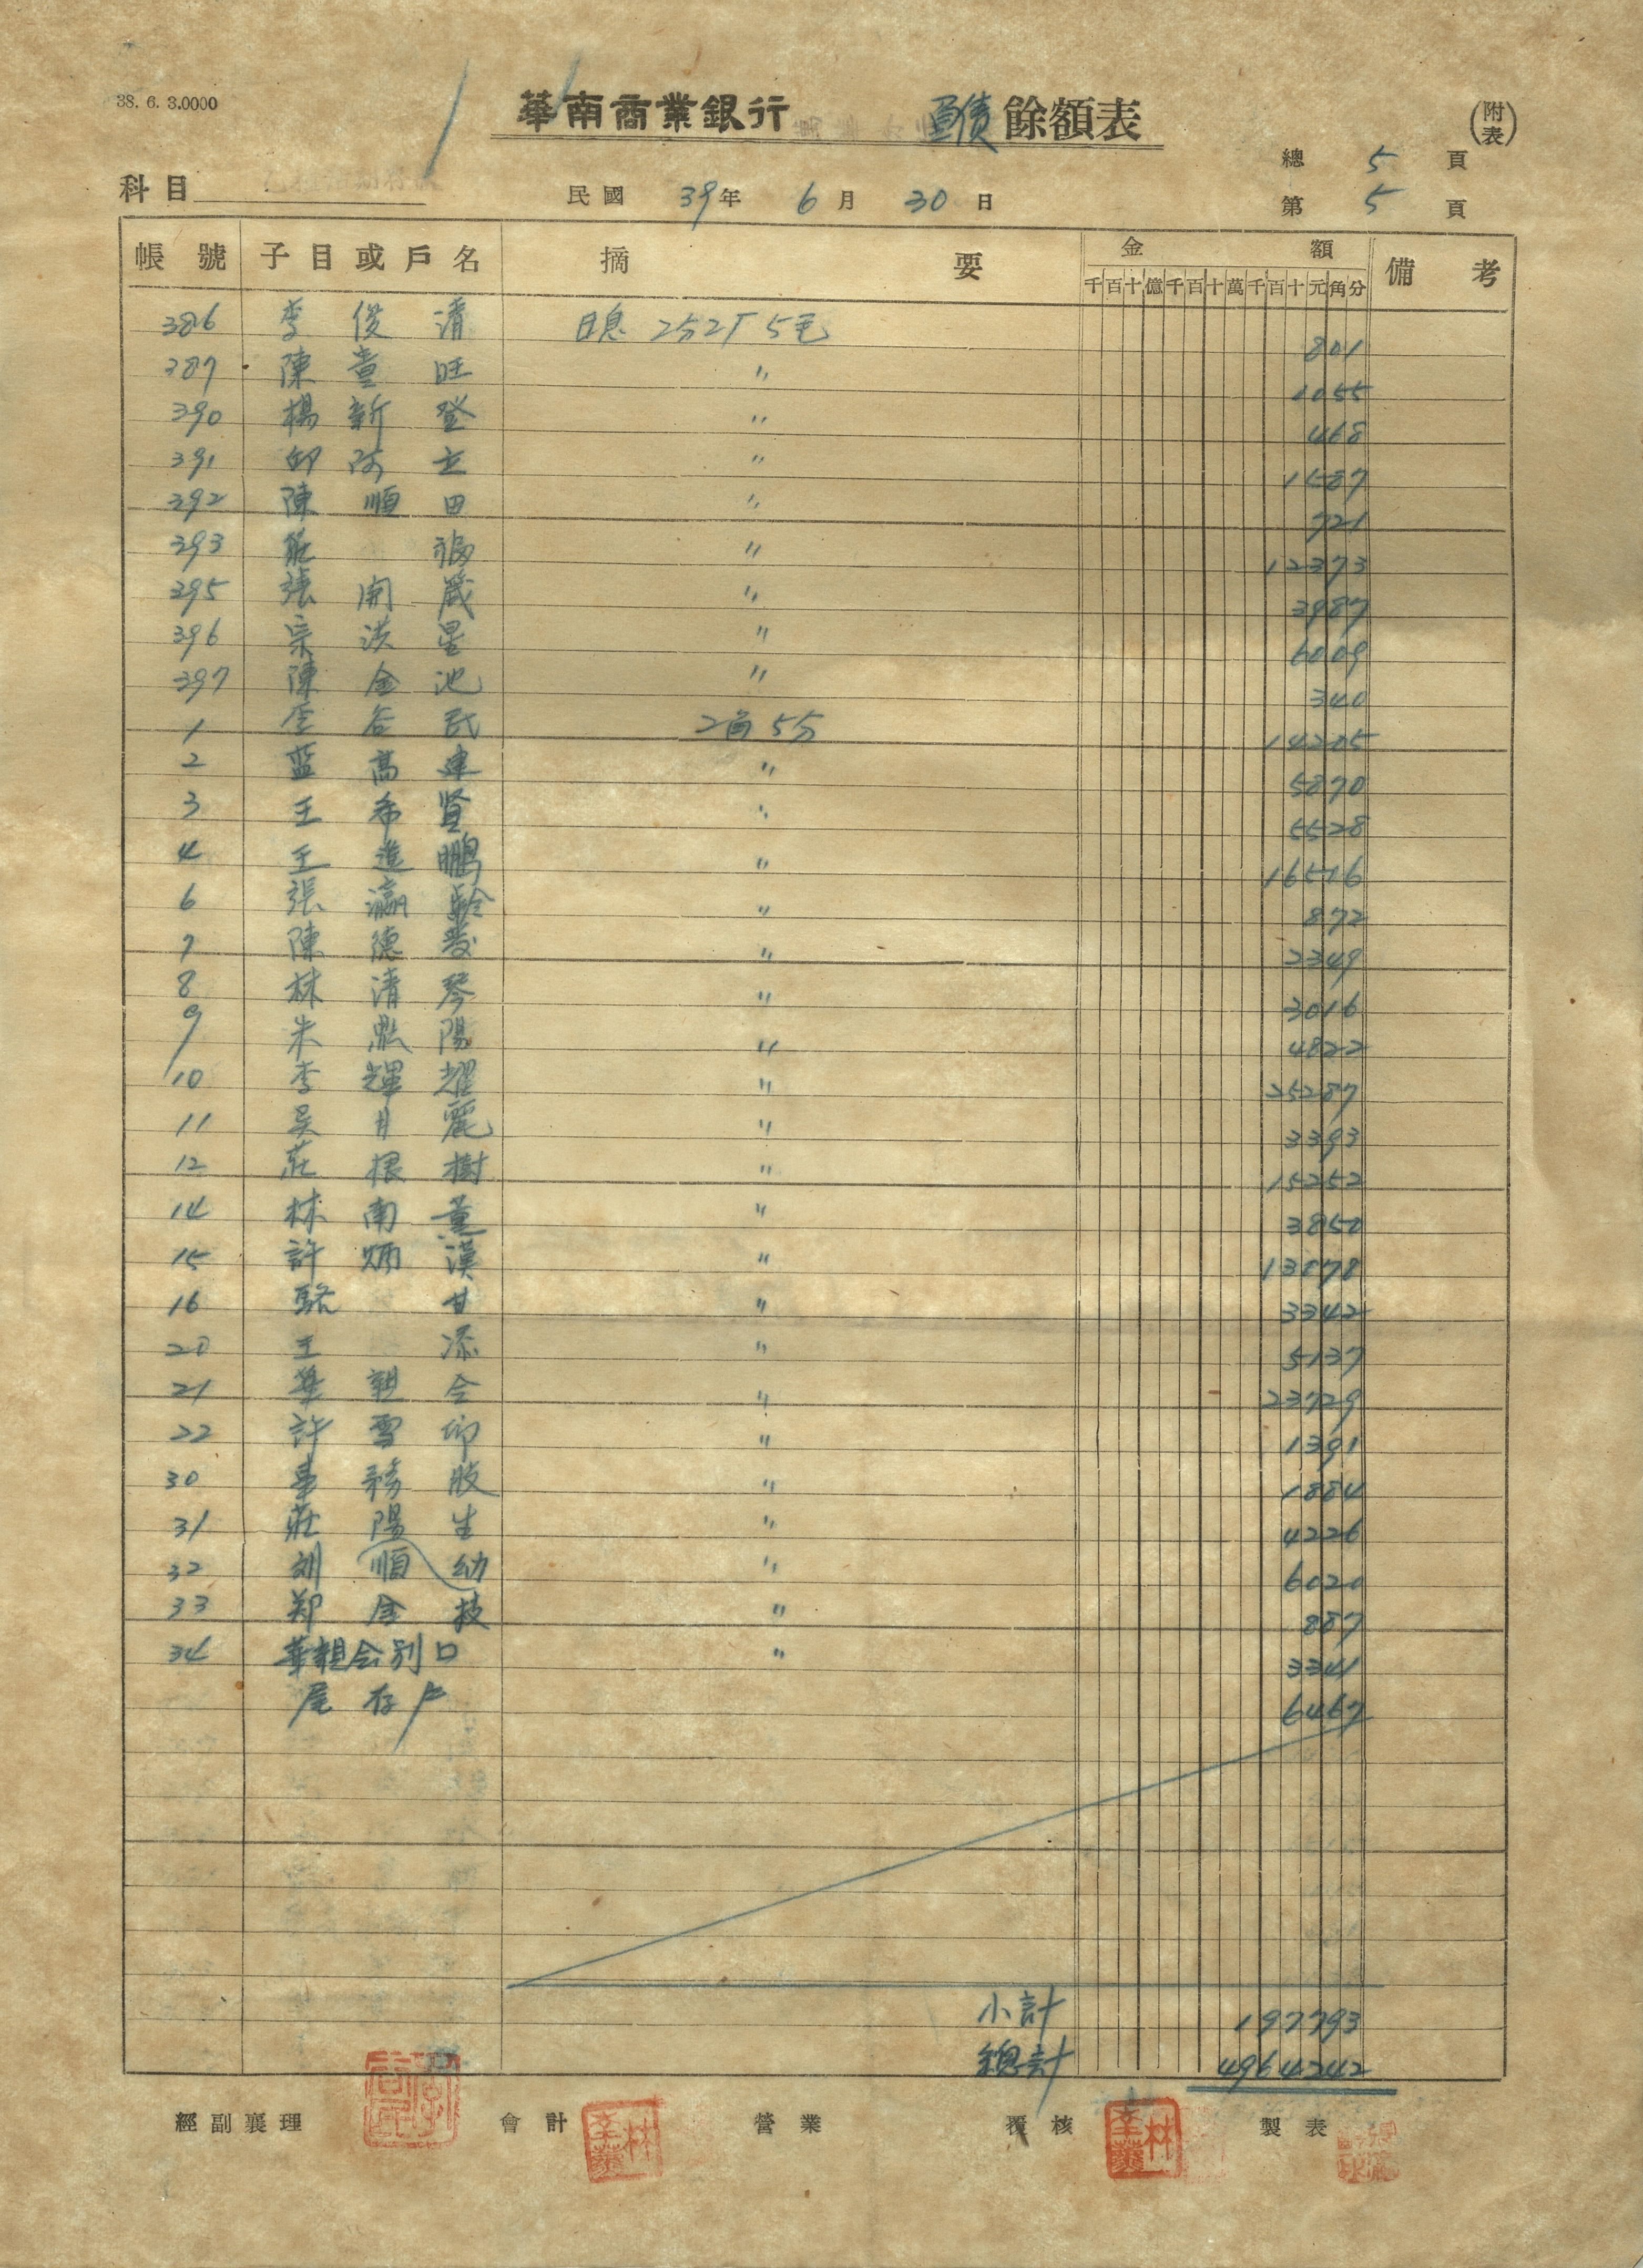 38. 6. 3.0000
華南商業銀行 餘額表
(附表)
總 5 頁
科目 民國 39年 6月 30日 第 5 頁
帳號 子目或戶名 摘要 金額 備考
千百十億千百十萬千百十元角分
386 李俊清 日息 2分2厂5毛 801
387 陳童旺 〃 1055
390 楊新登 〃 468
391 邱阿立 〃 1587
392 陳順田 〃 721
393 熊福 〃 12373
395 張開歲 〃 3987
396 宗洪星 〃 6009
397 陳金池 〃 340
1 李谷民 2角5分 14205
2 藍高建 〃 5870
3 王希賢 〃 5528
4 王進鵬 〃 16516
6 張瀛齡 〃 872
7 陳德發 〃 2349
8 林清琴 〃 3016
9 朱鼎陽 〃 4822
10 李輝耀 〃 25287
11 吴月麗 〃 3393
12 莊根樹 〃 15252
14 林南薰 〃 3850
15 許炳漢 〃 13878
16 駱甘 〃 3342
20 王添 〃 5137
21 華親会 〃 23729
22 許雪卯 〃 1391
30 〃 1884
31 莊陽生 〃 4226
32 刘順幼 〃 6020
33 郑金枝 〃 887
34 華親会别口 〃 3341
尾存户 6467
小計 197793
總計 4964242
經副襄理 會計 營業 覆核 製表